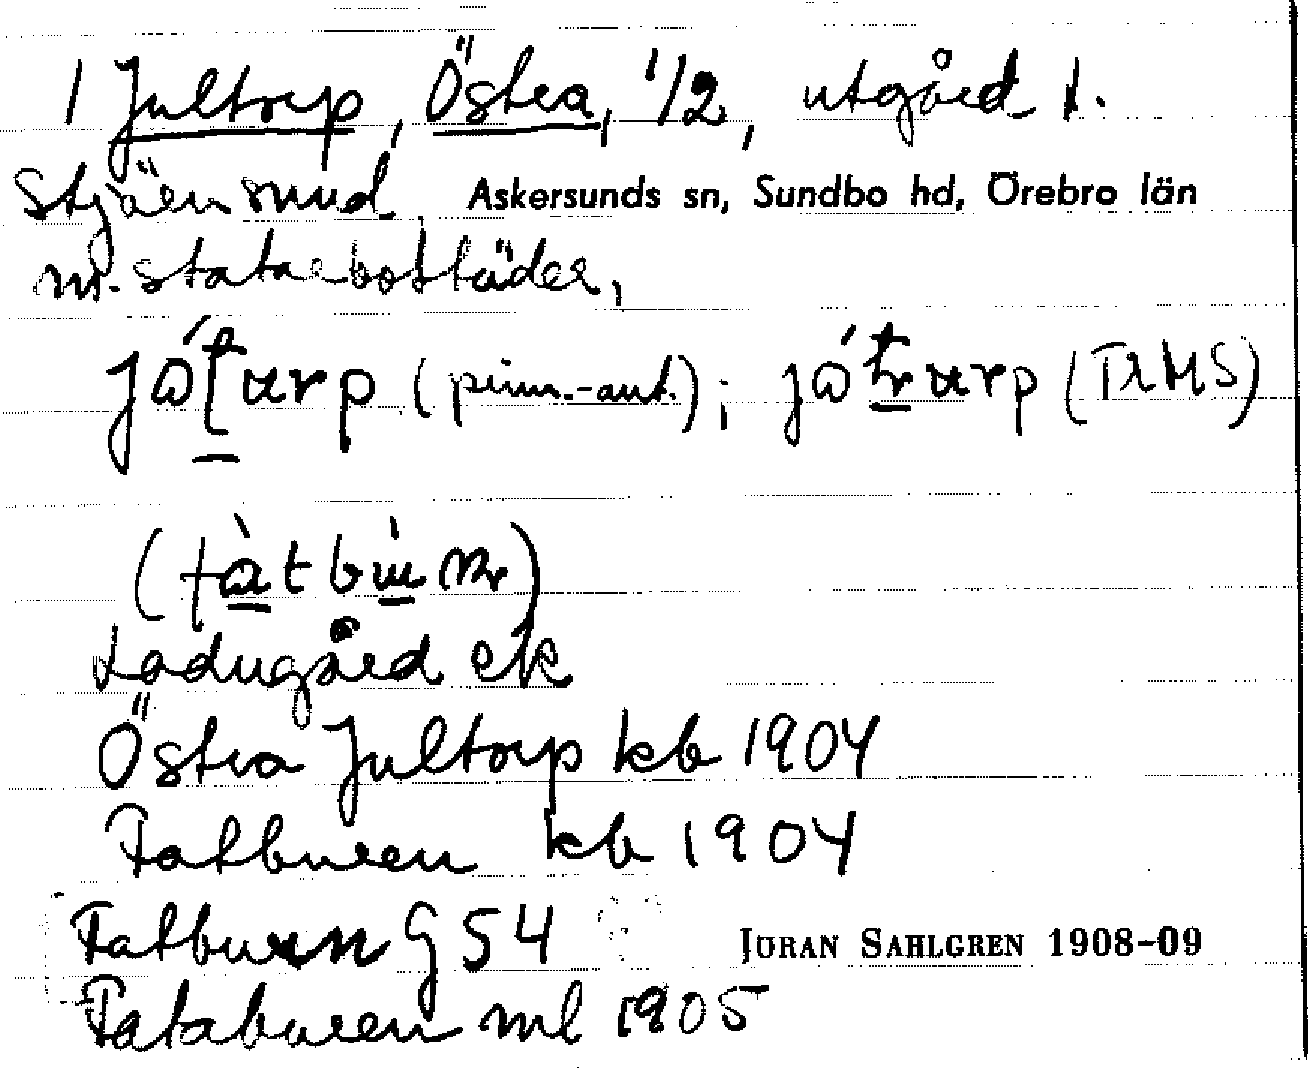 1 Jultorp, Östra, 1/2, utgård t.
Stjärnsund, Askersunds sn, Sundbo hd, Örebro län
m. statarebostäder,
(prim.-ant.);
Ladugård ek
Östra Jultorp kb 1904
Fatburen kb 1904
Fatburn G 54 JÖRAN SAHLGREN 1908–09
Fataburen ml 1905